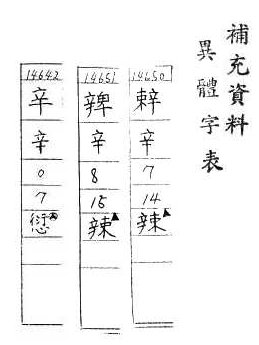 補充資料
異體字表
14650
辢
辛
7
14
辣▲
14651
辛
8
15
辣▲
14642
辛
辛
0
7
愆